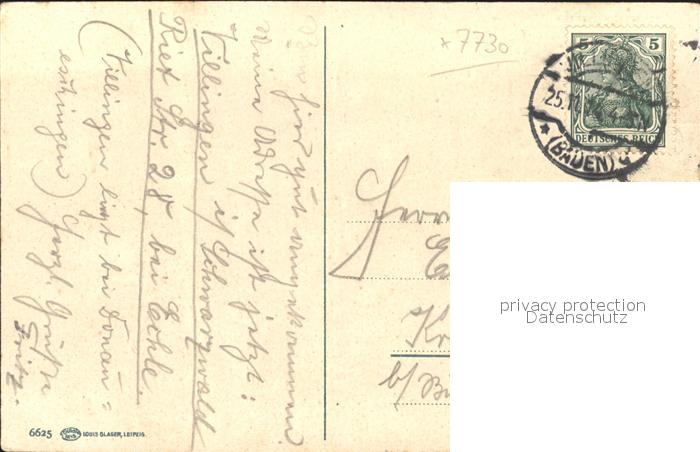 Bin hier gut angekommen
Meine Adresse ist jetzt:
Villingen i/ Schwarzwald
Riet Str. 28, bei Eckle.
(Villingen liegt bei Donau=
eschingen) Herzl. Grüße
Fritz.
x 7730
5 5
25.
DEUTSCHES REICH
* (BADEN)
Herr
b/
privacy protection
Datenschutz
6625 LOUIS GLASER, LEIPZIG.